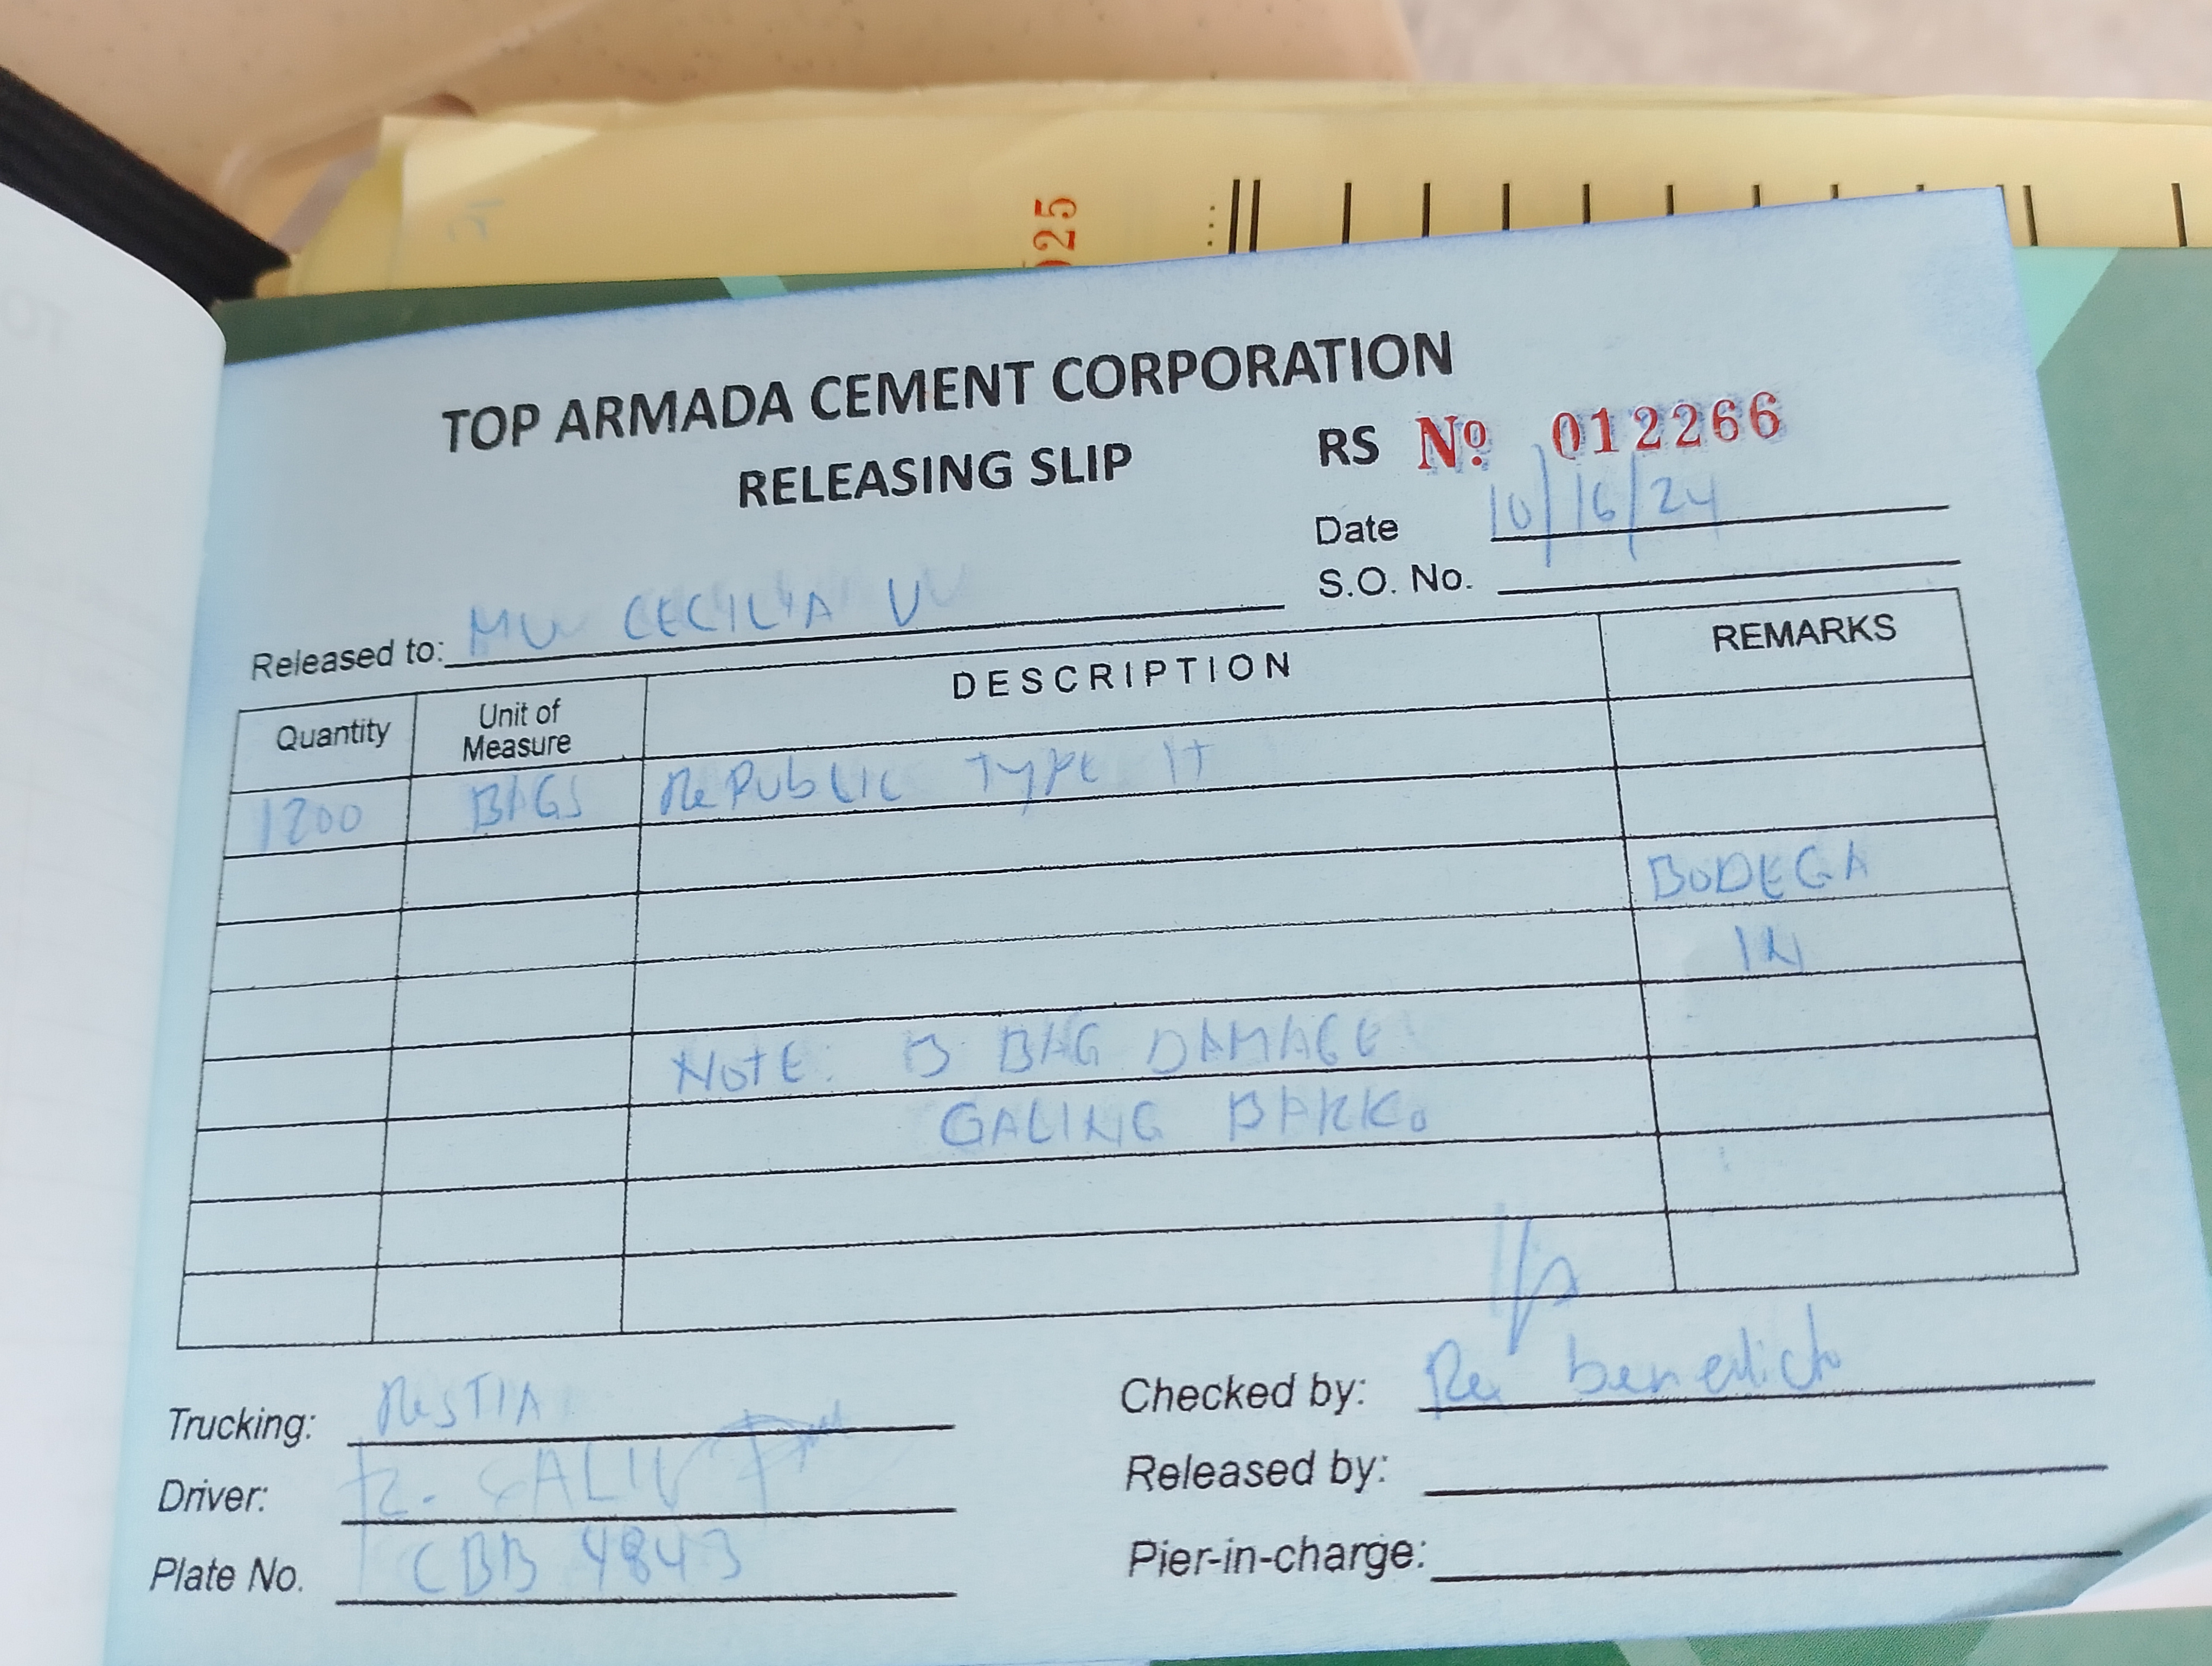 025
TOP ARMADA CEMENT CORPORATION
RELEASING SLIP
RS Nº 012266
Date 10/16/24
S.O. No.
Released to: MV CECILIA V
Quantity Unit of Measure DESCRIPTION REMARKS
1200 BAGS RePUBLIC TYPE 1T
BODEGA
IN
NOTE: BAG DAMAGE
GALING BARKO
Trucking: ResTIA
Driver: R.
Plate No. CBB 4843
Checked by: Re benedicto
Released by:
Pier-in-charge: